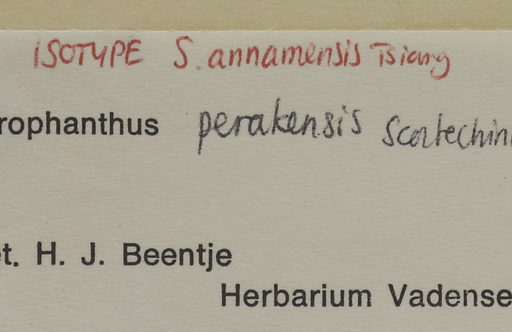 ISOTYPE S. annamensis Tsiang
rophanthus perakensis Scortechin
t. H. J. Beentje
Herbarium Vadense